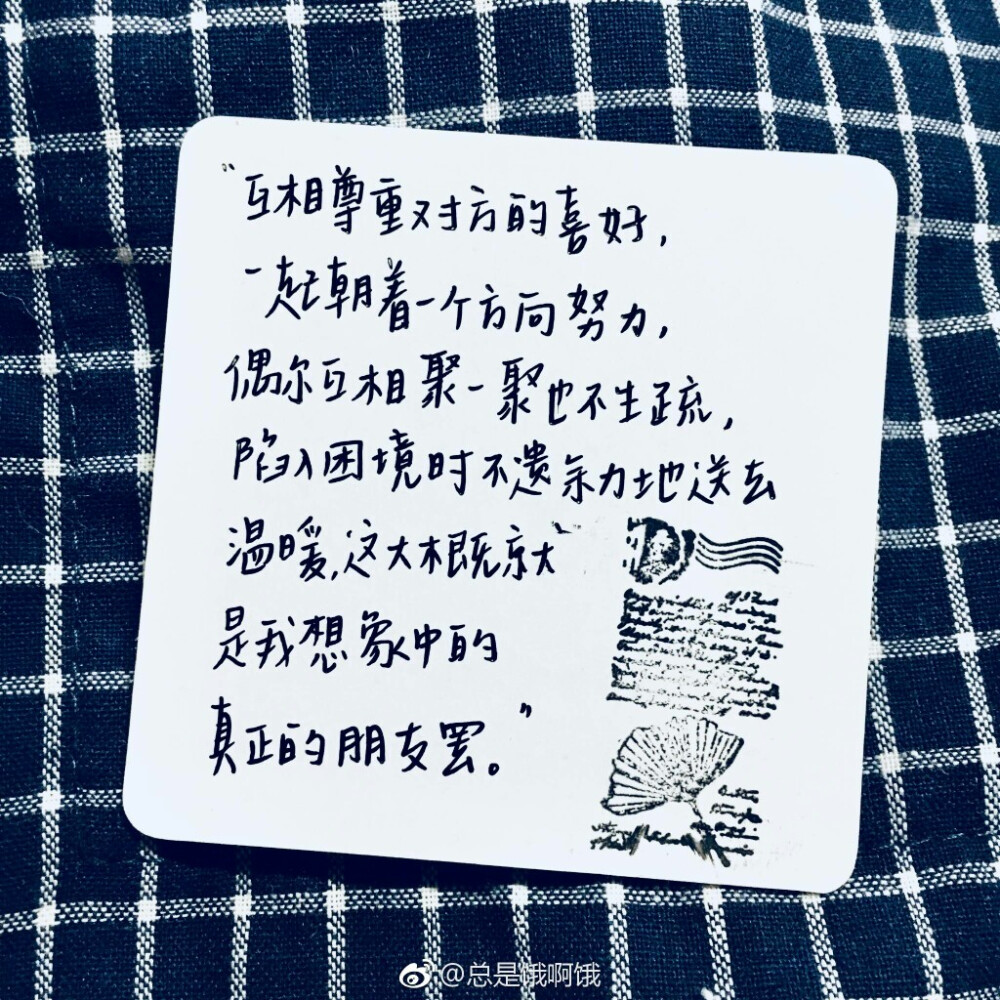 “互相尊重对方的喜好，
一起朝着一个方向努力，
偶尔互相聚一聚也不生疏，
陷入困境时不遗余力地送去
温暖，这大概就
是我想象中的
真正的朋友罢。”
@总是饿啊饿